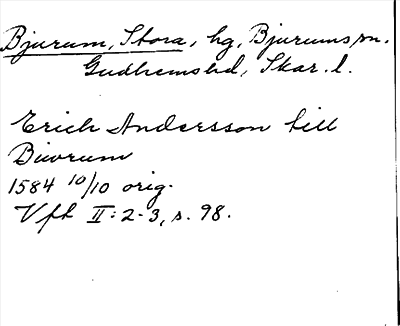 Bjurum, Stora, hg, Bjurums sn.
Gudhems hd, Skar. l.
Erich Andersson till
Biurum
1584 10/10 orig.
Vfk II: 2-3, s. 98.